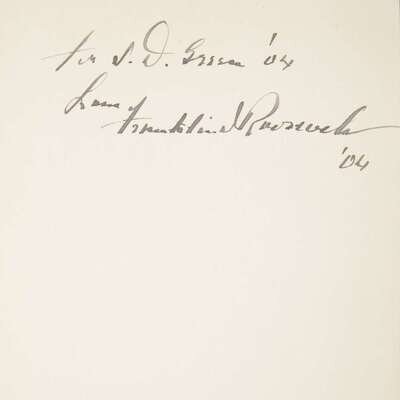 for J. D. Green '04
from
Franklin D Roosevelt
'04